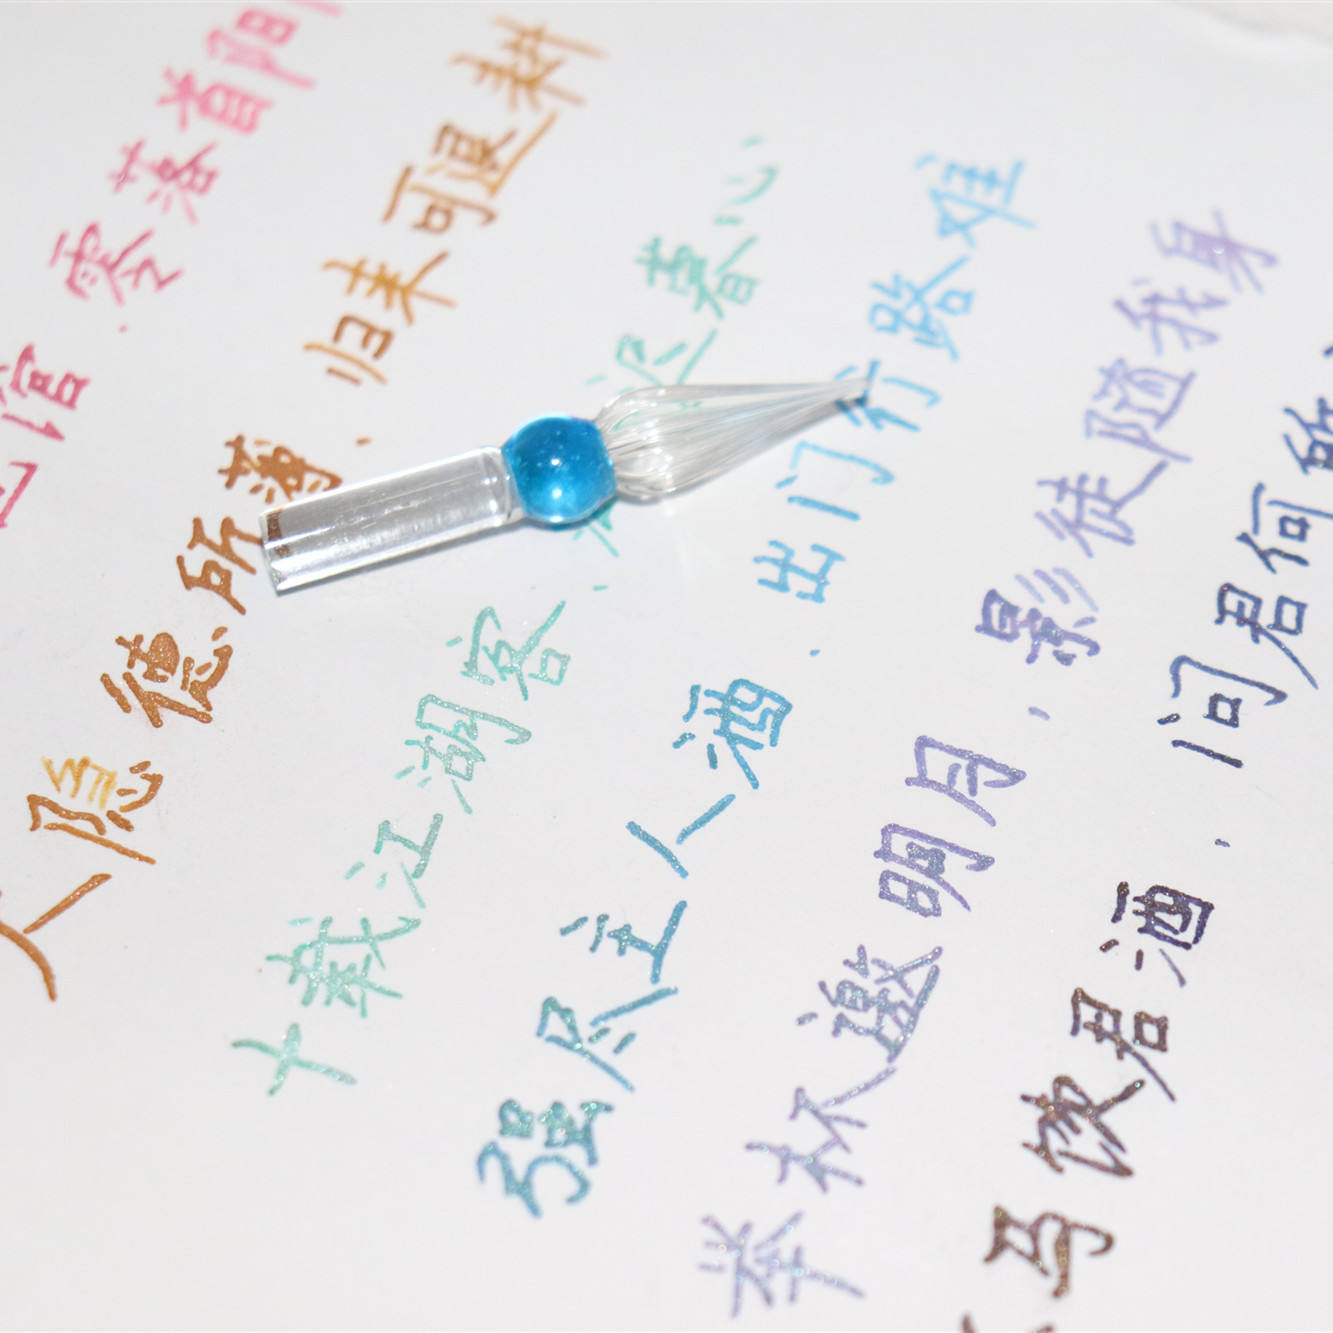 馆，零落首阳
人隐德所薄，归来可退耕
十载江湖客，迟暮心
强尽主人酒，出门行路难
举杯邀明月，影徒随我身
马饮君酒，问君何所